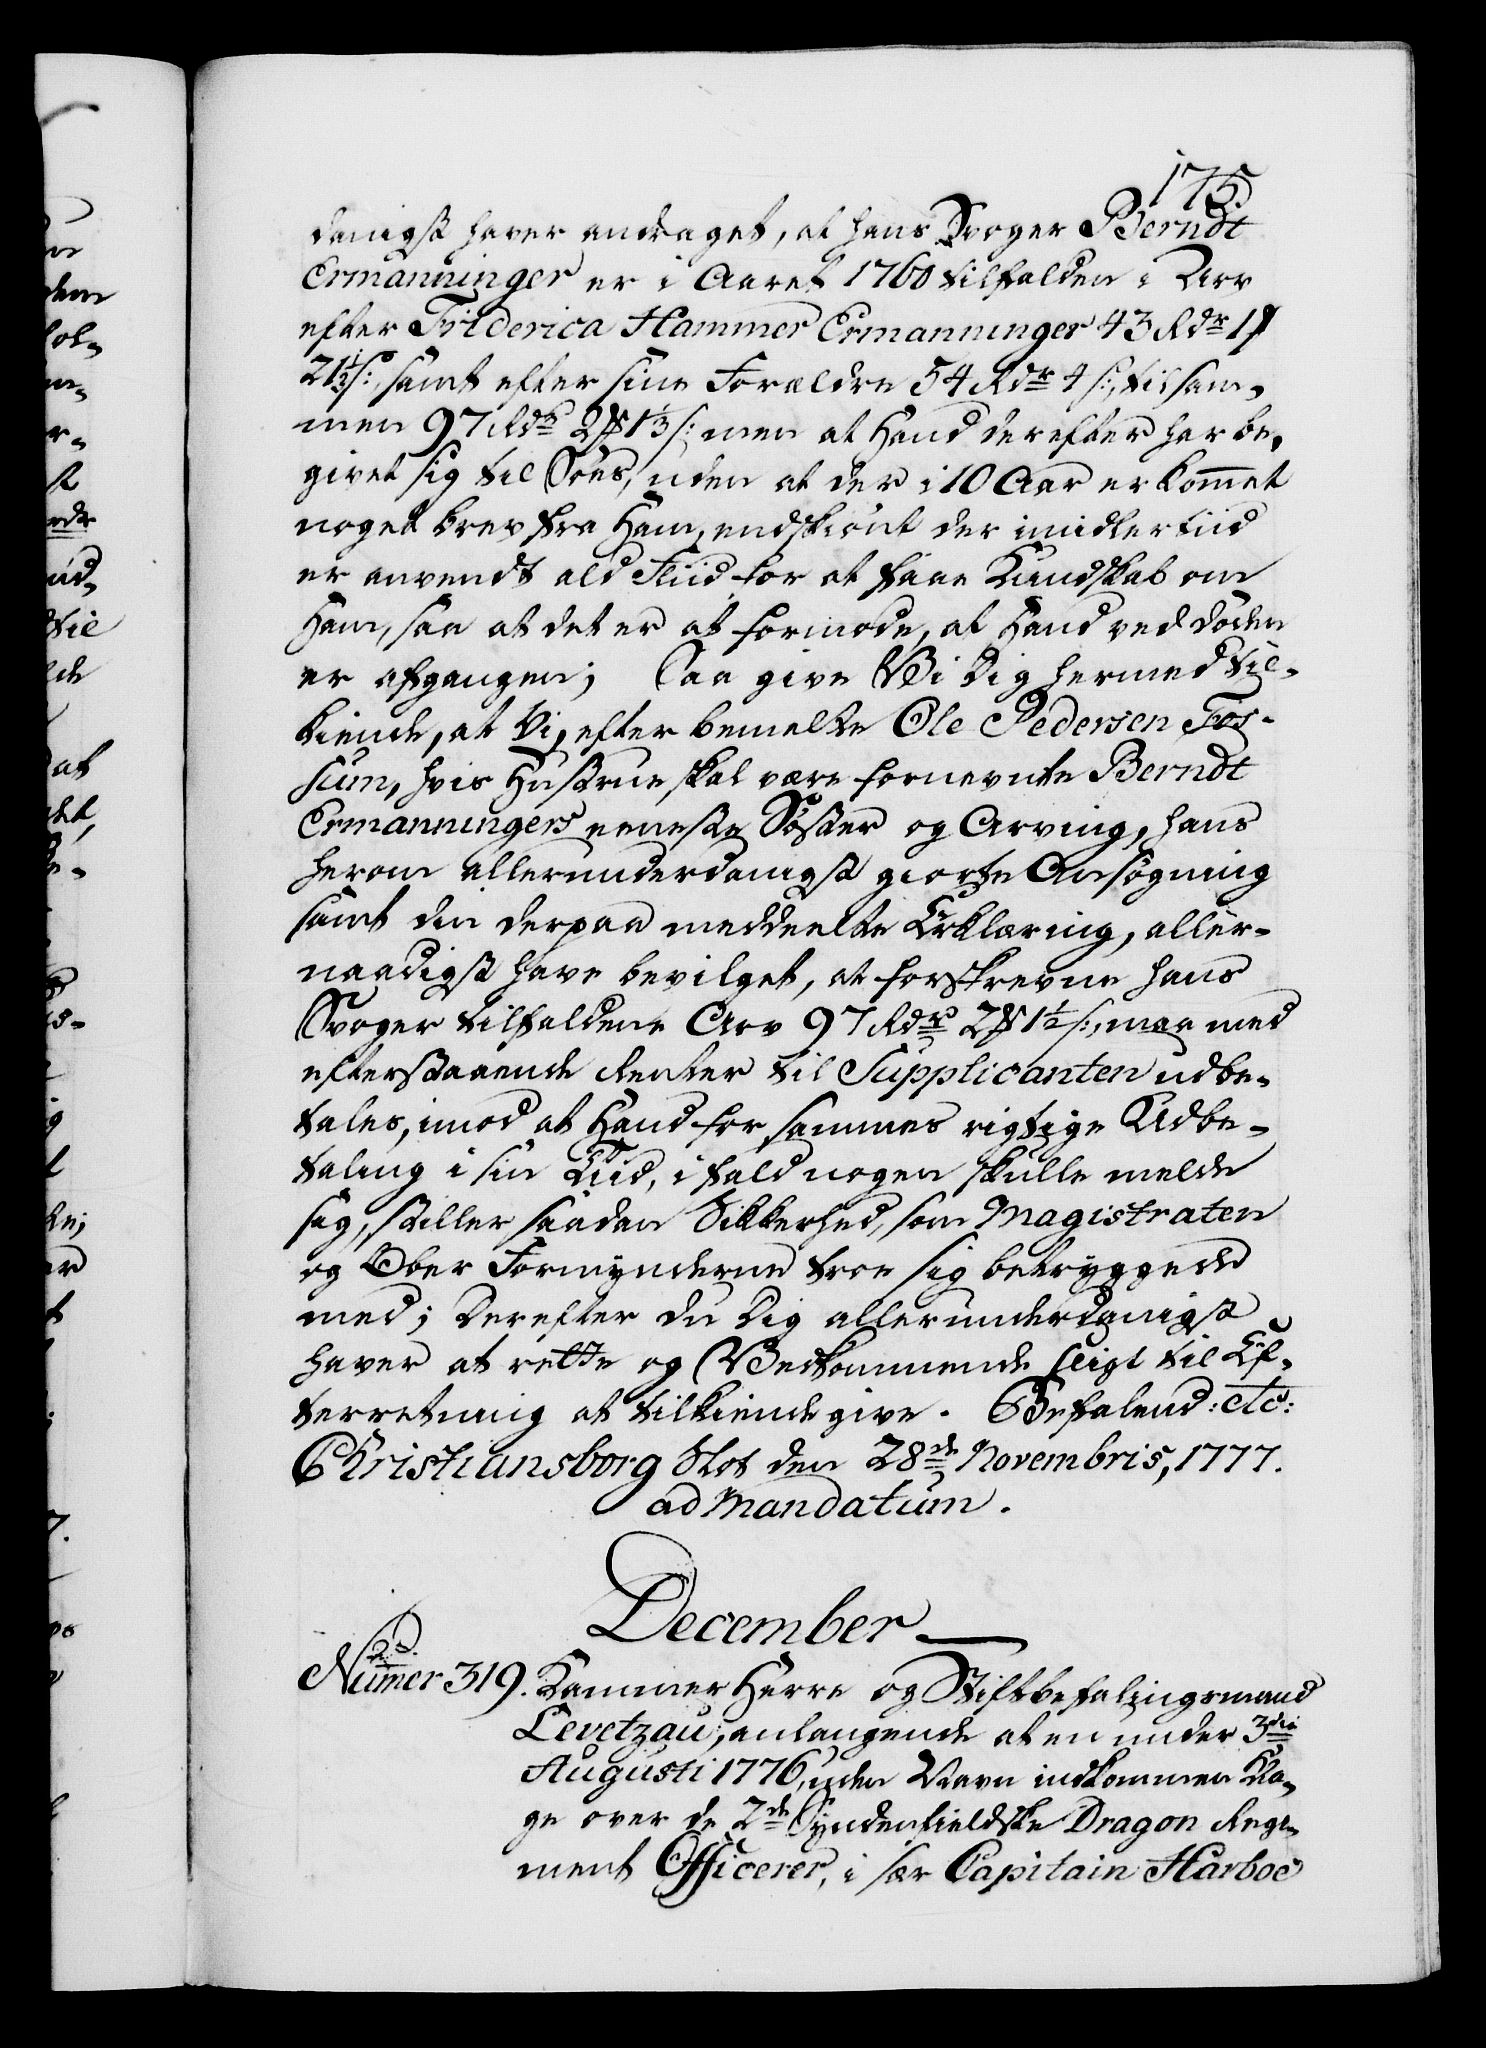 175
danigst haver andraget, at hans Svoger Berndt
Ermanninger er i Aaret 1760 tilfalden i Arv
efter Friderica Hammer Ermanninger 43 Rdr 1
21½ s:, samt efter sine Forældre 54 Rdr 4 s:, tilsam-
men 97 Rdr 2 1½ s: men at Hand derefter har be-
givet sig til Søes, uden at der i 10 Aar er kommet
noget brev fra Ham, endskiønt der imidlertiid
er anvendt ald Fliid for at faae Kundskab om
Ham, saa at det er at formode, at Hand ved døden
er afgangen; Saa give Vi Dig hermed til-
kiende, at Vi, efter bemelte Ole Pedersen Fos-
sum, hvis Hustrue skal være fornevnte Berndt
Ermanningers eeneste Søster og Arving, hans
herom allerunderdanigst giorte Ansøgning
samt din derpaa meddeelte Erklæring, aller-
naadigst have bevilget, at forskrevne hans
Svoger tilfaldene Arv 97 Rdr 2 1½ s:, maa med
efterstaaende Renter til Supplicanten udbe-
tales, imod at Hand for sammes rigtige Udbe-
taling i sin Tiid, i fald nogen skulle melde
sig, stiller saadan Sikkerhed, som Magistraten
og Ober Formynderne troe sig betryggede
med; Derefter du Dig allerunderdanigst
haver at rette og Vedkommende sligt til Ef-
terretning at tilkiende give. Befalend: etc:
Christiansborg Slot den 28de Novembris, 1777.
ad Mandatum.
December
Numer 319. Kammer Herre og Stiftbefalingsmand
Levetzau, anlangende at en under 3die
Augusti 1776, uden Navn indkommen Kla-
ge over de 2de Syndenfieldske Dragon Regi-
ment Officerer, i sær Capitain Harboe